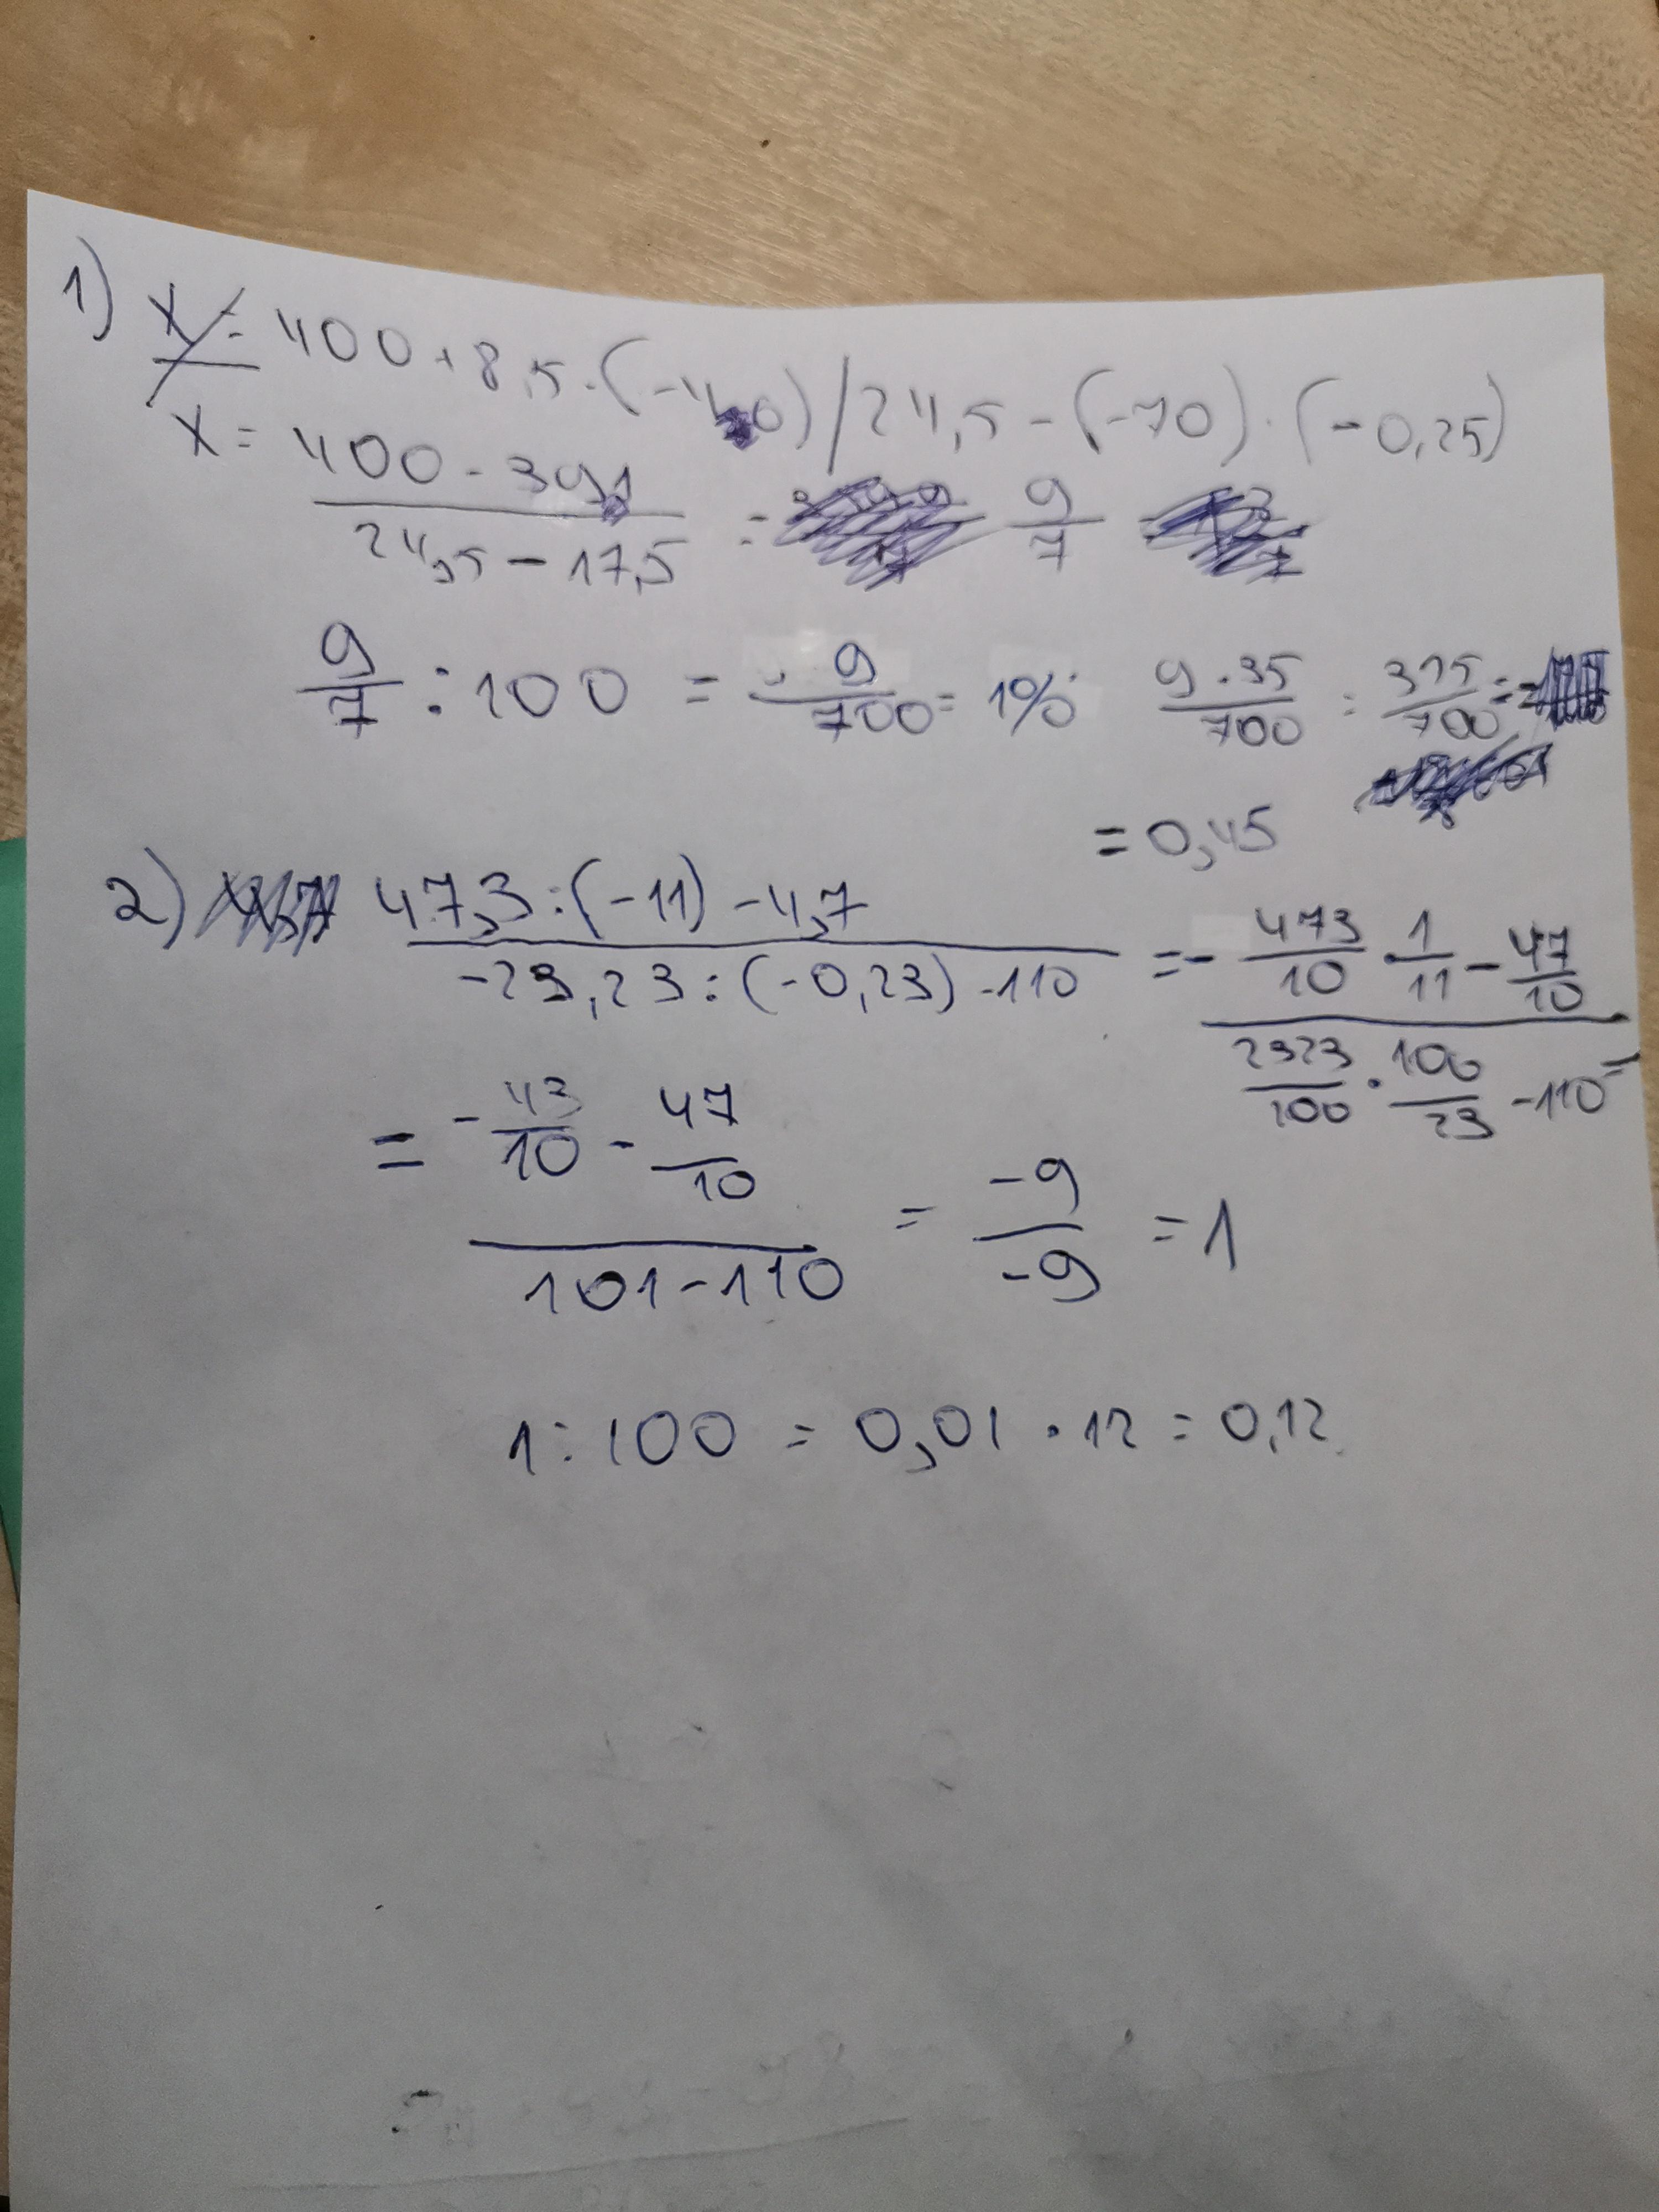 1) x = 400 + 8,5 · (-4 0) / 24,5 - (-70) · (-0,25)
x = 400 - 391 / 24,5 - 17,5 = 9/7
9/7 : 100 = 9/700 = 1% 9·35/700 = 315/700 =
= 0,45
2) 47,3 : (-11) - 4,7 / -23,23 : (-0,23) - 110 = - 473/10 · 1/11 - 47/10 / 2323/100 · 100/23 - 110 =
= - 43/10 - 47/10 / 101 - 110 = -9/-9 = 1
1 : 100 = 0,01 · 12 = 0,12